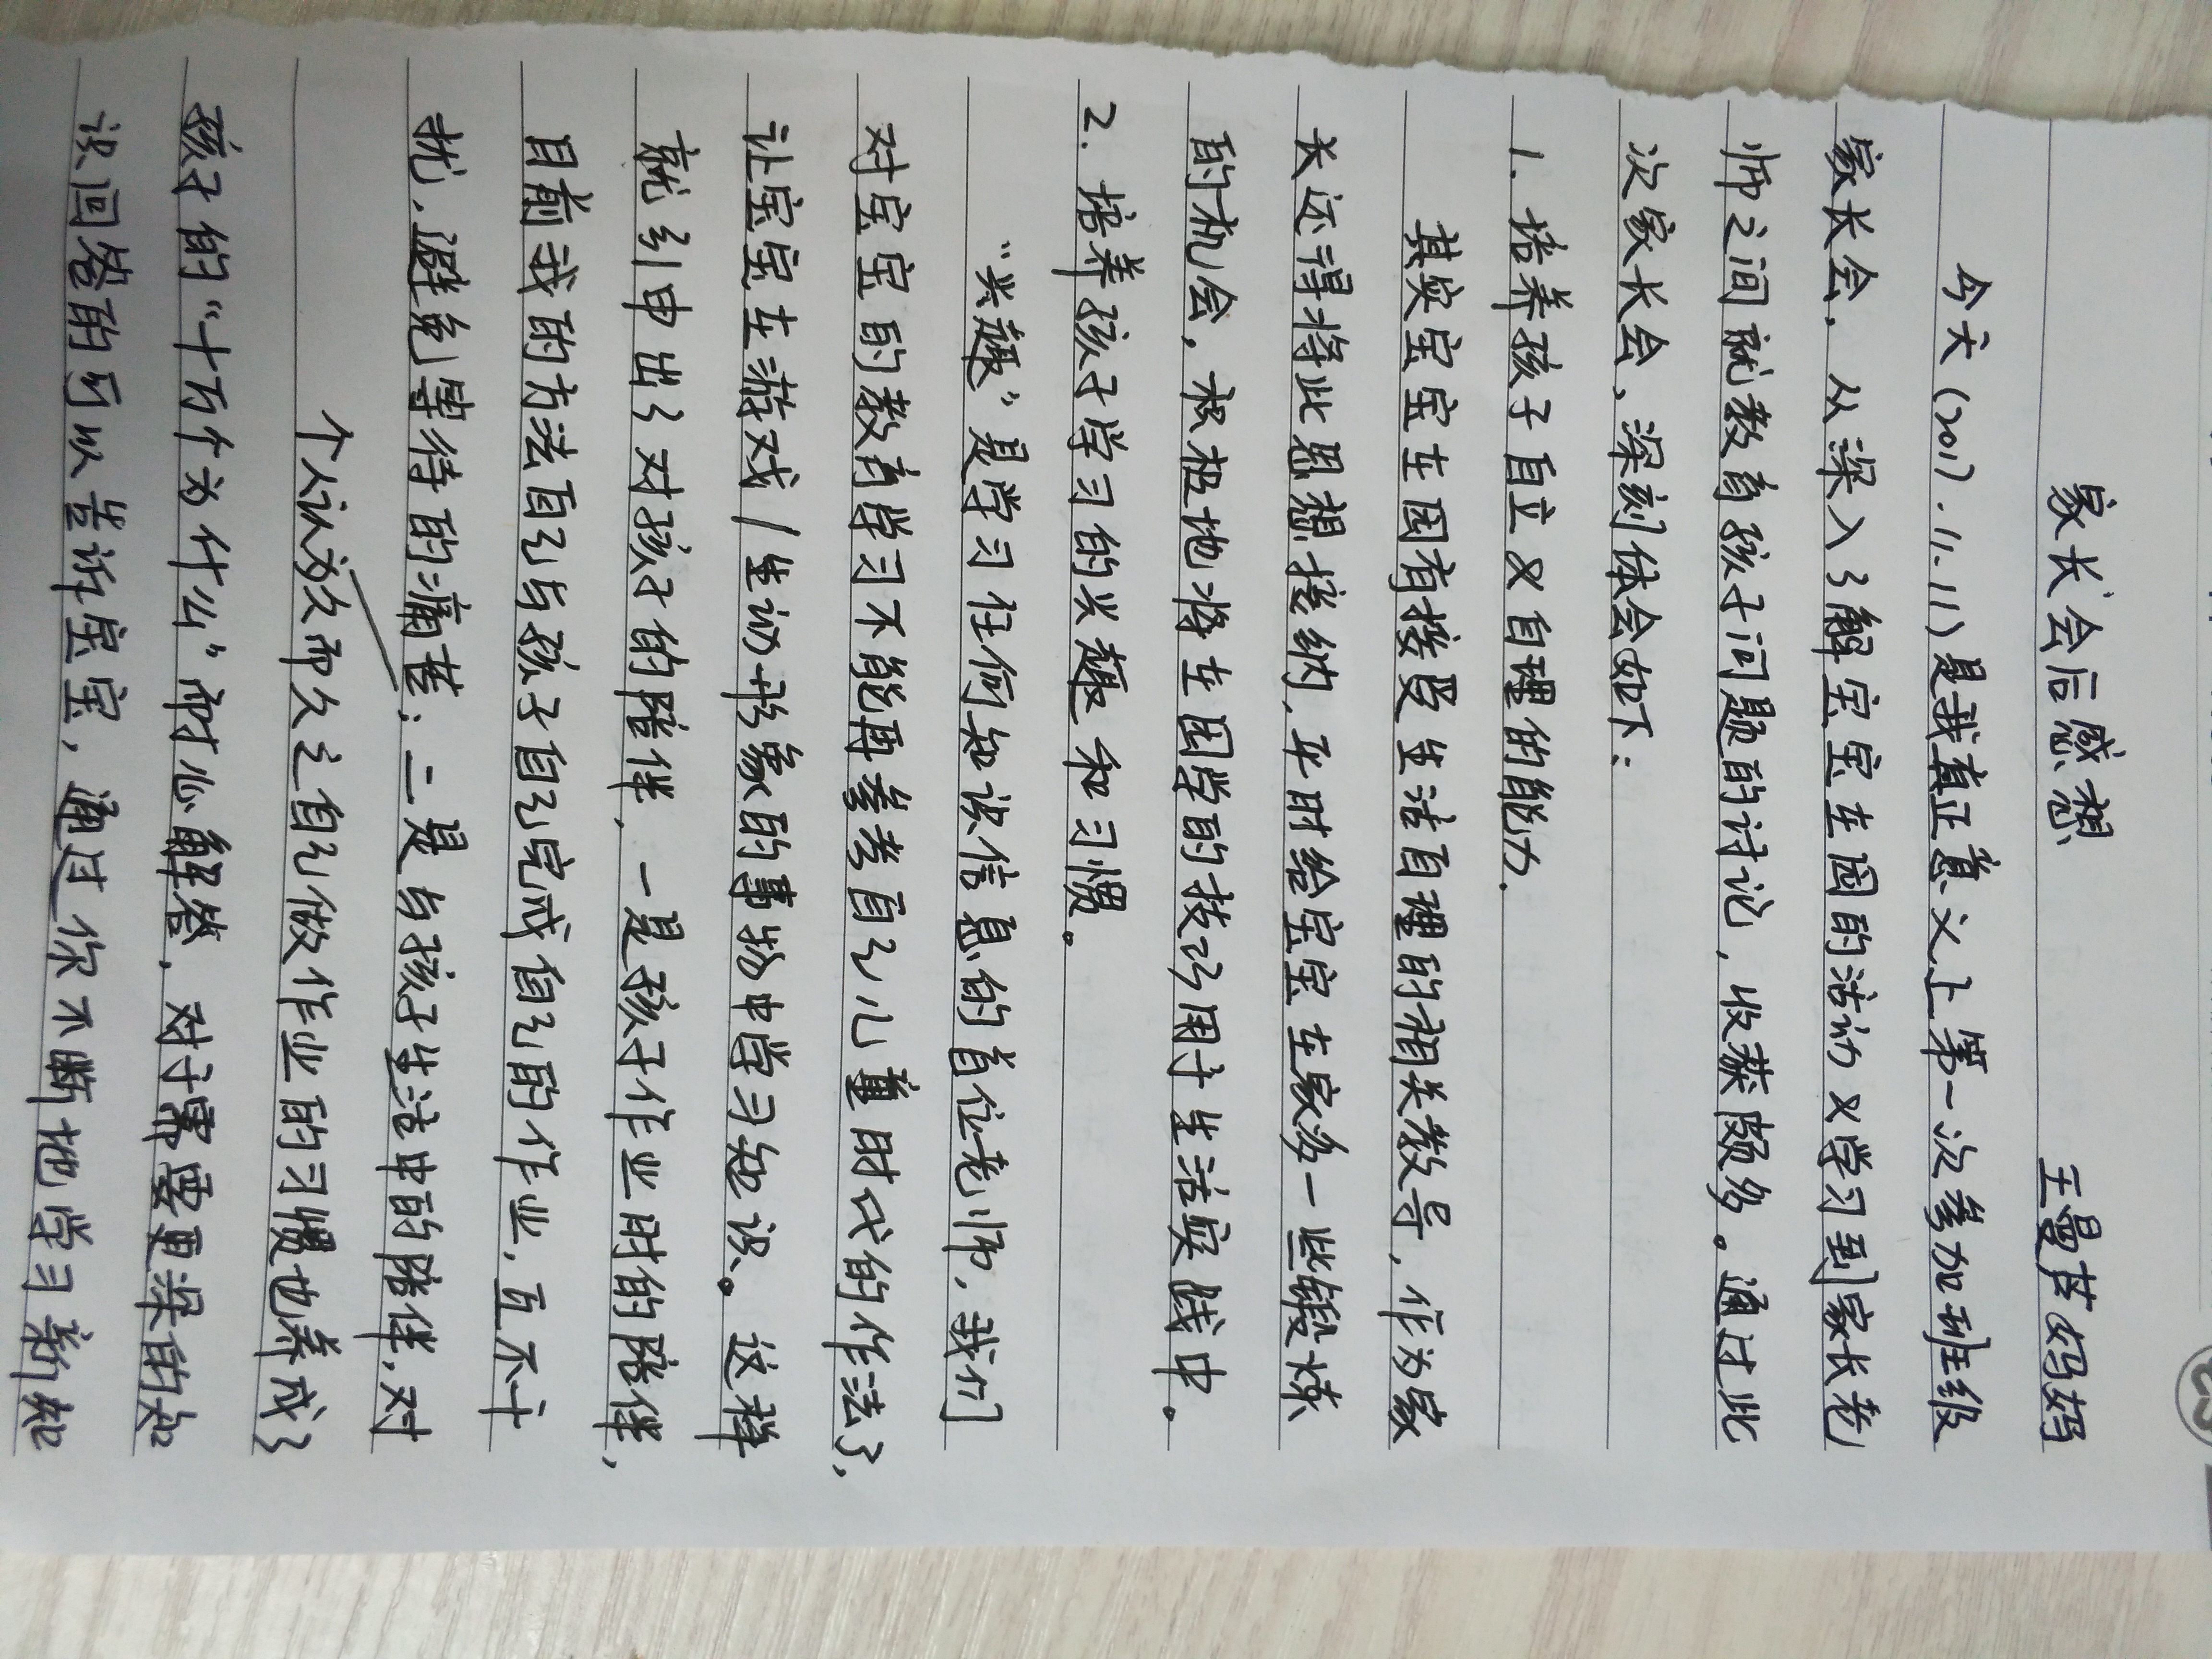 家长会后感想
王曼芪妈妈
今天(2017.11.11)是我真正意义上第一次参加班级
家长会，从深入了解宝宝在园的活动又学习到家长老
师之间就教育孩子问题的讨论，收获颇多。通过此
次家长会，深刻体会如下：
1. 培养孩子自立又自理的能力.
其实宝宝在园有接受生活自理的相关教导，作为家
长还得将此思想接纳，平时给宝宝在家多一些锻炼
的机会，积极地将在园学的技巧用于生活实践中。
2. 培养孩子学习的兴趣和习惯。
“兴趣”是学习任何知识信息的首位老师，我们
对宝宝的教育学习不能再参考自己儿童时代的作法了，
让宝宝在游戏/生动形象的事物中学习知识。这样
就引申出了对孩子的陪伴，一是孩子作业时的陪伴，
目前我的方法自己与孩子自己完成自己的作业，互不干
扰，避免等待的痛苦；二是与孩子生活中的陪伴，对
个人认为久而久之自己做作业的习惯也养成了
孩子的“十万个为什么”耐心解答，对于需要更深的知
识回答的可以告诉宝宝，通过你不断地学习新知